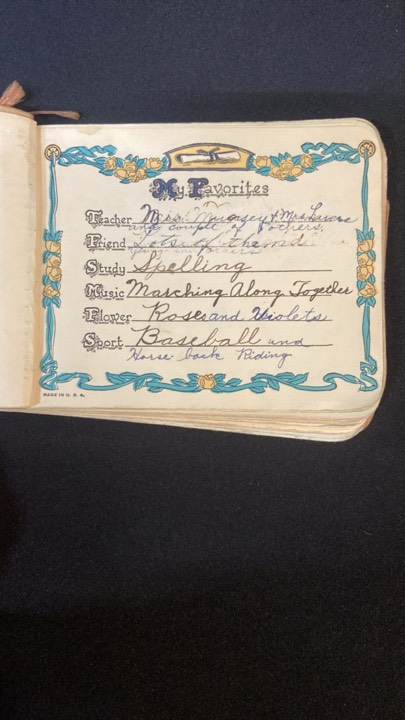 My Favorites
Teacher Mrs. & Mrs.
and couple of others.
Friend Lots of them
Study Spelling
Music Marching Along Together
Flower Roses and Violets
Sport Baseball and
Horse back Riding
MADE IN U. S. A.